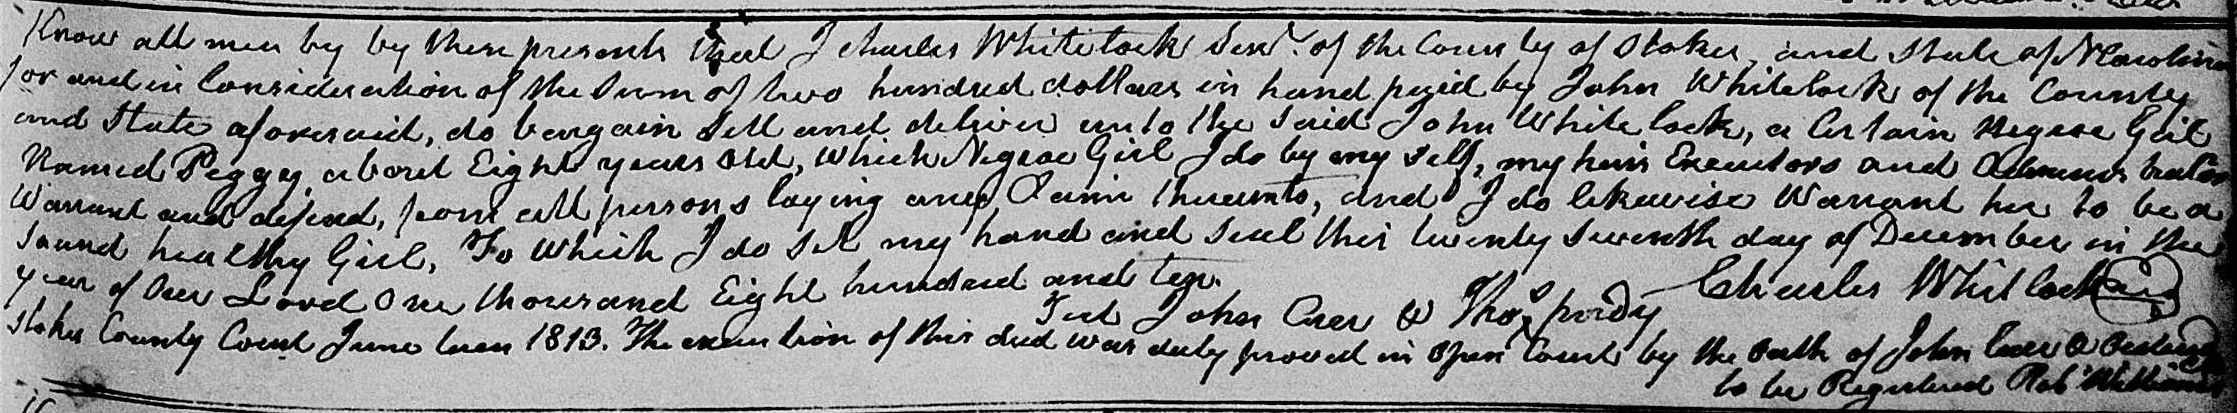 Know all men by by these presents that I Charles Whitelock Senr. of the County of Stokes, and State of N Carolina
for and in Consideration of the Sum of two hundred dollars in hand paid by John Whitelock of the County
and State aforesaid, do bargain Sell and deliver unto the Said John Whitelock, a Certain Negroe Girl
Named Peggy, about Eight years Old, Which Negroe Girl I do by my Self, my heirs Executors and Administrators
Warrant and defend, from all persons laying any Claim thereunto, and I do likewise Warrant her to be a
Sound healthy Girl, To Which I do Set my hand and Seal this twenty Seventh day of December in the
year of Our Lord One thousand Eight hundred and ten. Charles Whitlock
Test John Carr & Thos. purdy
Stokes County Court June term 1813. The execution of this deed was duly proved in open Court by the Oath of John Carr &
to be Registered Robt Williams